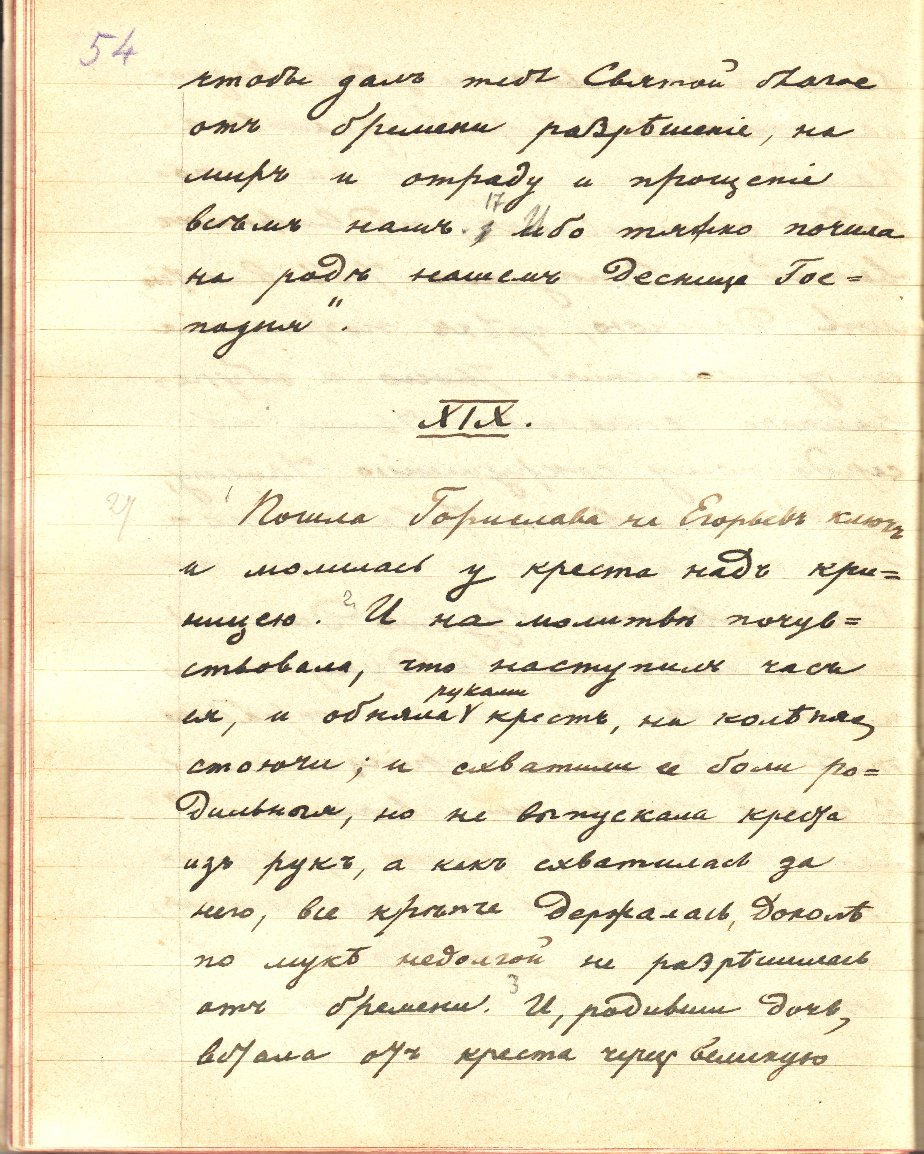 54
чтобы далъ тебѣ Святой благое
отъ бремени разрѣшеніе, на
миръ и отраду и прощеніе
всѣмъ намъ. 17 Ибо тяжко почила
на родѣ нашемъ Десница Гос=
подня".
XIX.
27 1 Пошла Горислава на Егорьевъ ключъ
и молилась у креста надъ кри=
ницею. 2 И на молитвѣ почув=
ствовала, что наступилъ часъ
ея, и обняла руками крестъ, на колѣняхъ
стоючи; и схватили ее боли ро=
дильныя, но не выпускала креста
изъ рукъ, а какъ схватилась за
него, все крѣпче держалась, доколѣ
по мукѣ недолгой не разрѣшилась
отъ бремени. 3 И, родивши дочь,
встала отъ креста черезъ великую